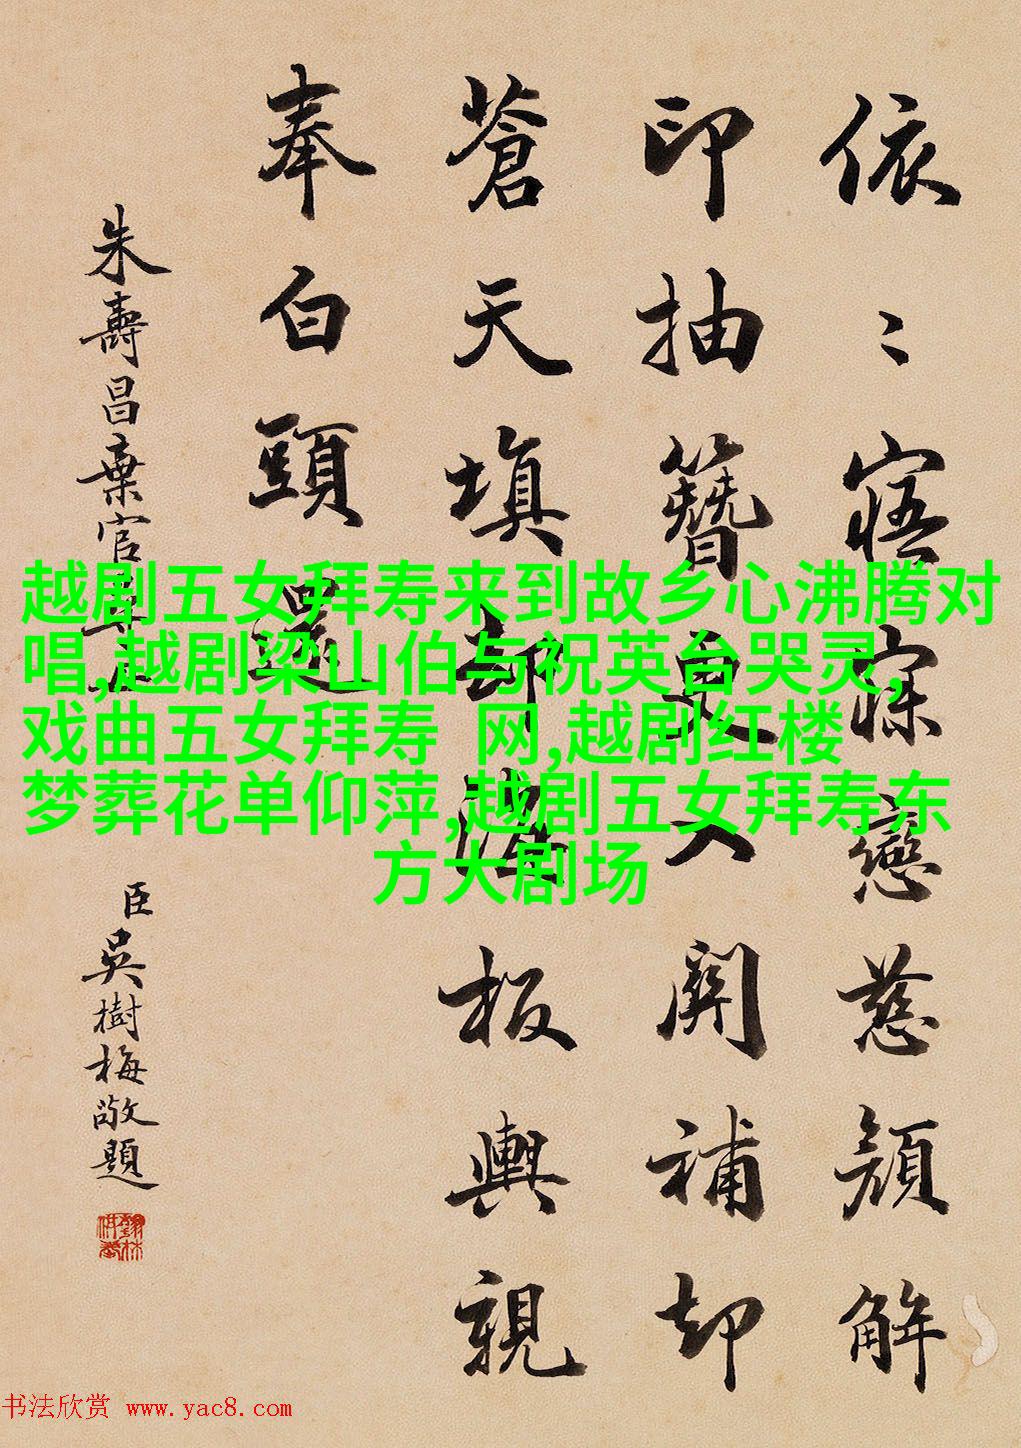 依〻寤寐戀慈顏解
印抽簪更入關補却
蒼天填却海板輿親
奉白頭還
朱壽昌棄官尋母
臣吳樹梅敬題
越剧五女拜寿来到故乡心沸腾对
唱,越剧梁山伯与祝英台哭灵,
戏曲五女拜寿 网,越剧红楼
梦葬花单仰萍,越剧五女拜寿东
方大剧场
书法欣赏 www.yac8.com